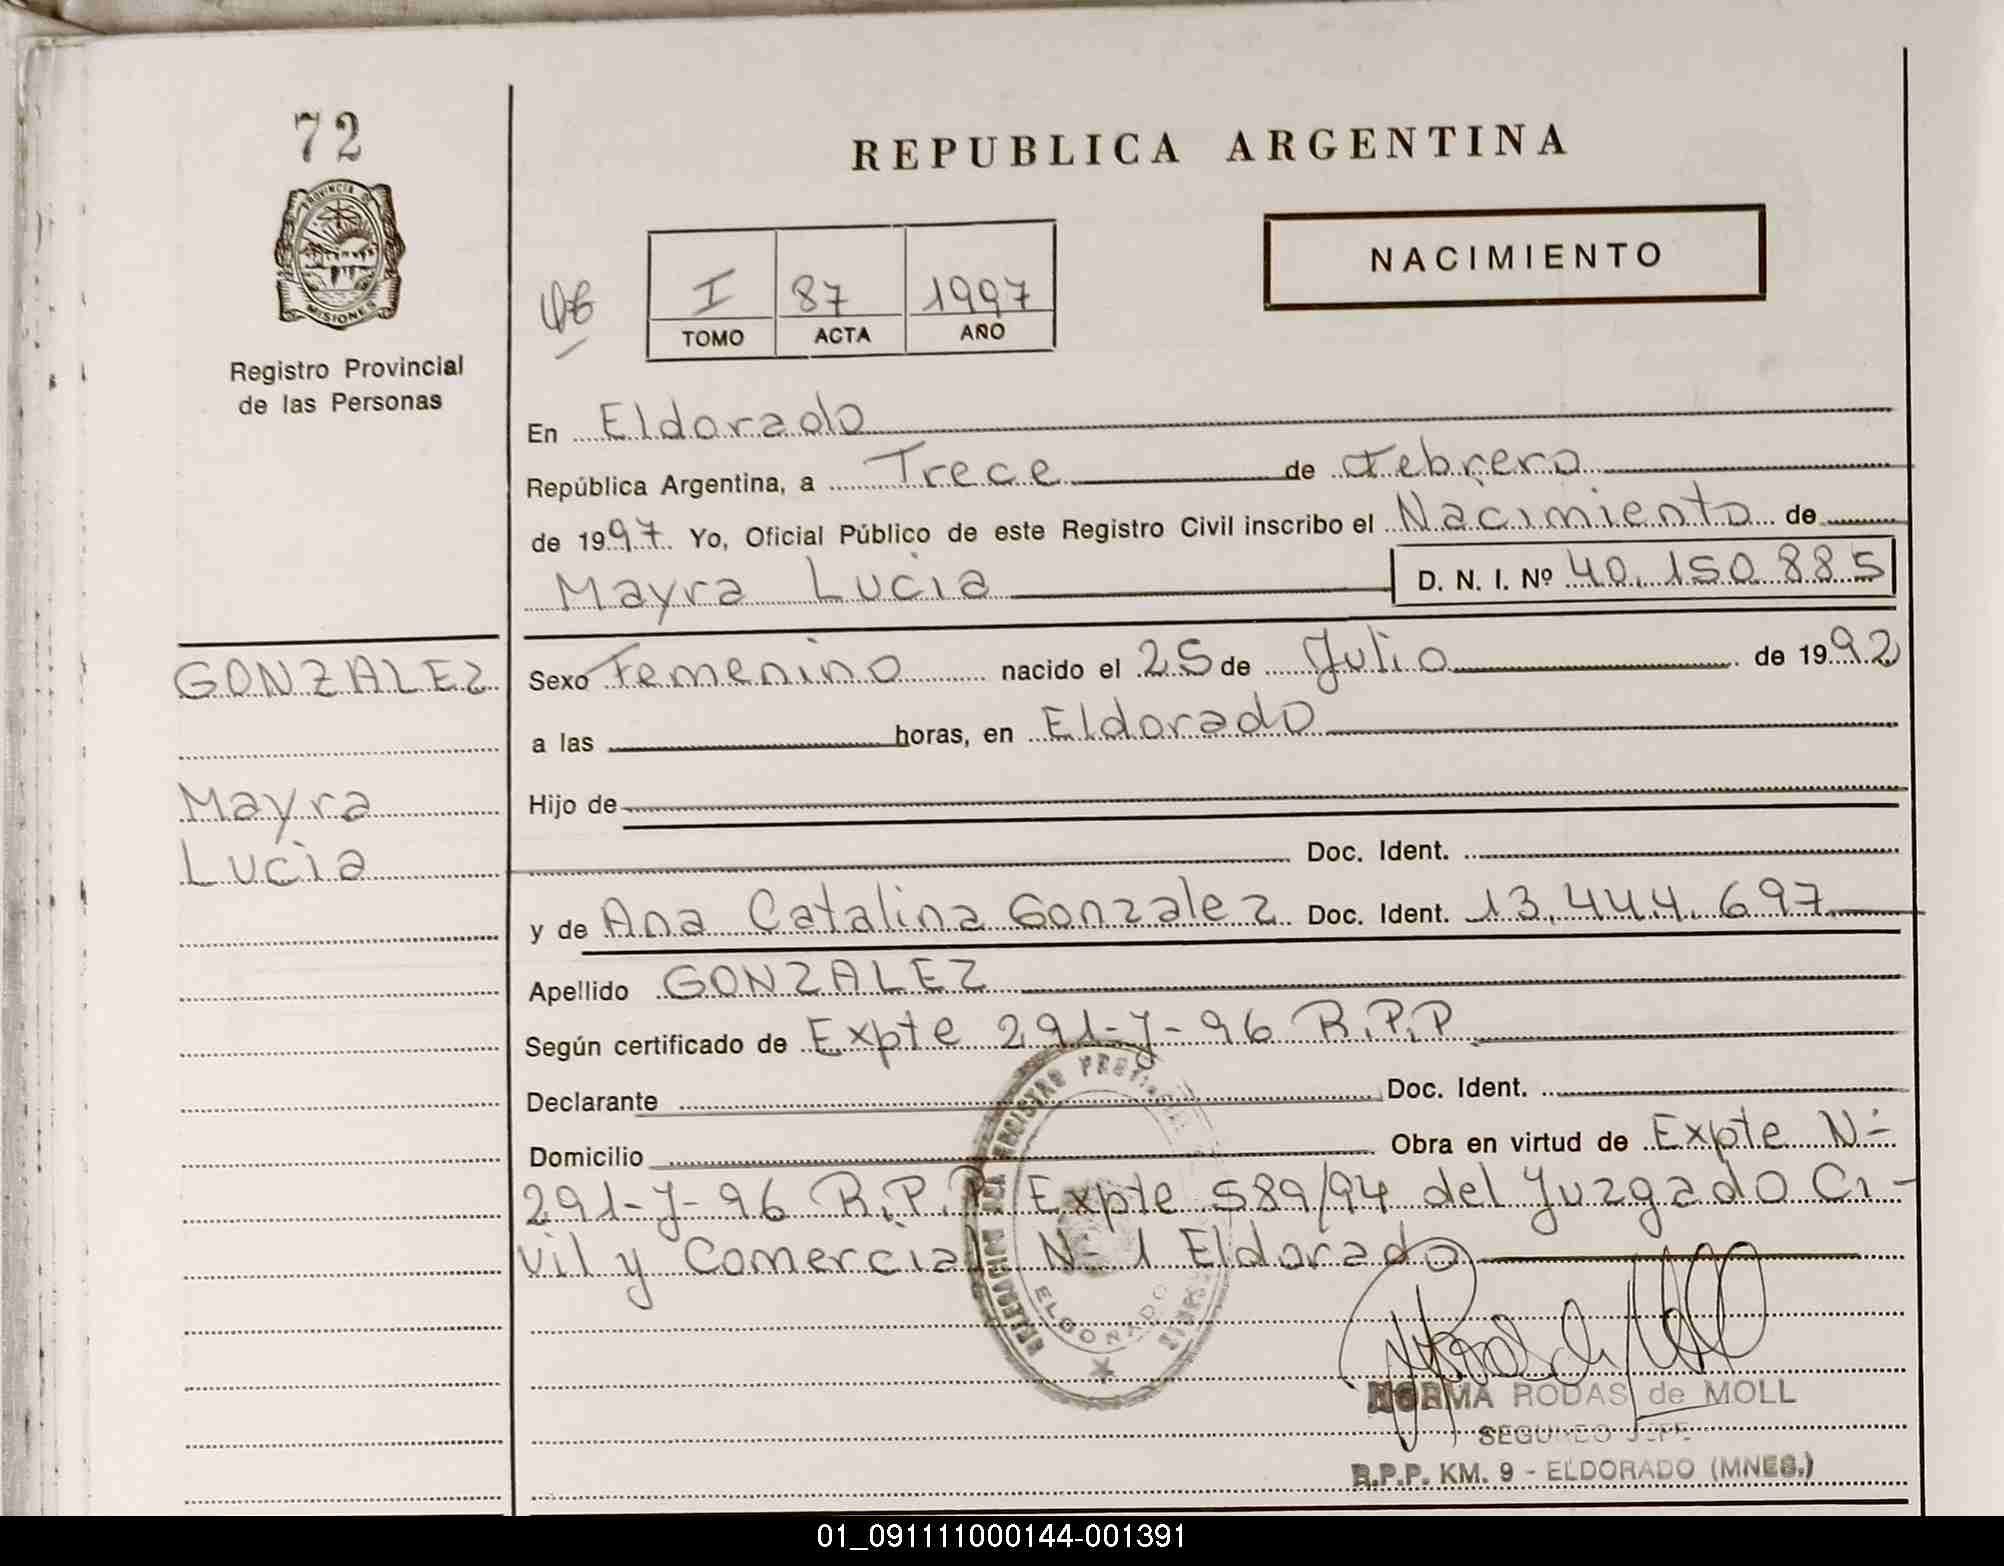 72
PROVINCIA D
MISIONES
Registro Provincial
de las Personas
REPUBLICA ARGENTINA
NACIMIENTO
I 87 1997
TOMO ACTA AÑO
En Eldorado
República Argentina, a Trece de Febrero
de 1997 Yo, Oficial Público de este Registro Civil inscribo el Nacimiento de
Mayra Lucia D. N. I. Nº 40.150.885
GONZALEZ
Mayra
Lucia
Sexo Femenino nacido el 25 de Julio de 1992
a las horas, en Eldorado
Hijo de
Doc. Ident.
y de Ana Catalina Gonzalez Doc. Ident. 13.444.697
Apellido GONZALEZ
Según certificado de Expte 291-J-96 R.P.P
Declarante Doc. Ident.
Domicilio Obra en virtud de Expte N-
291-J-96 R.P.P Expte 589/94 del Juzgado Ci-
vil y Comercial N- 1 Eldorado
ELDORADO
NORMA RODAS de MOLL
SEGUNDO JEFE
R.P.P. KM. 9 - ELDORADO (MNES.)
01_091111000144-001391